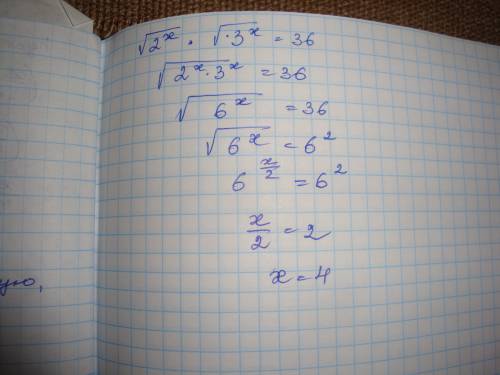 √(2^x) · √(·3^x) = 36
√(2^x · 3^x) = 36
√(6^x) = 36
√(6^x) = 6^2
6^(x/2) = 6^2
x/2 = 2
x = 4